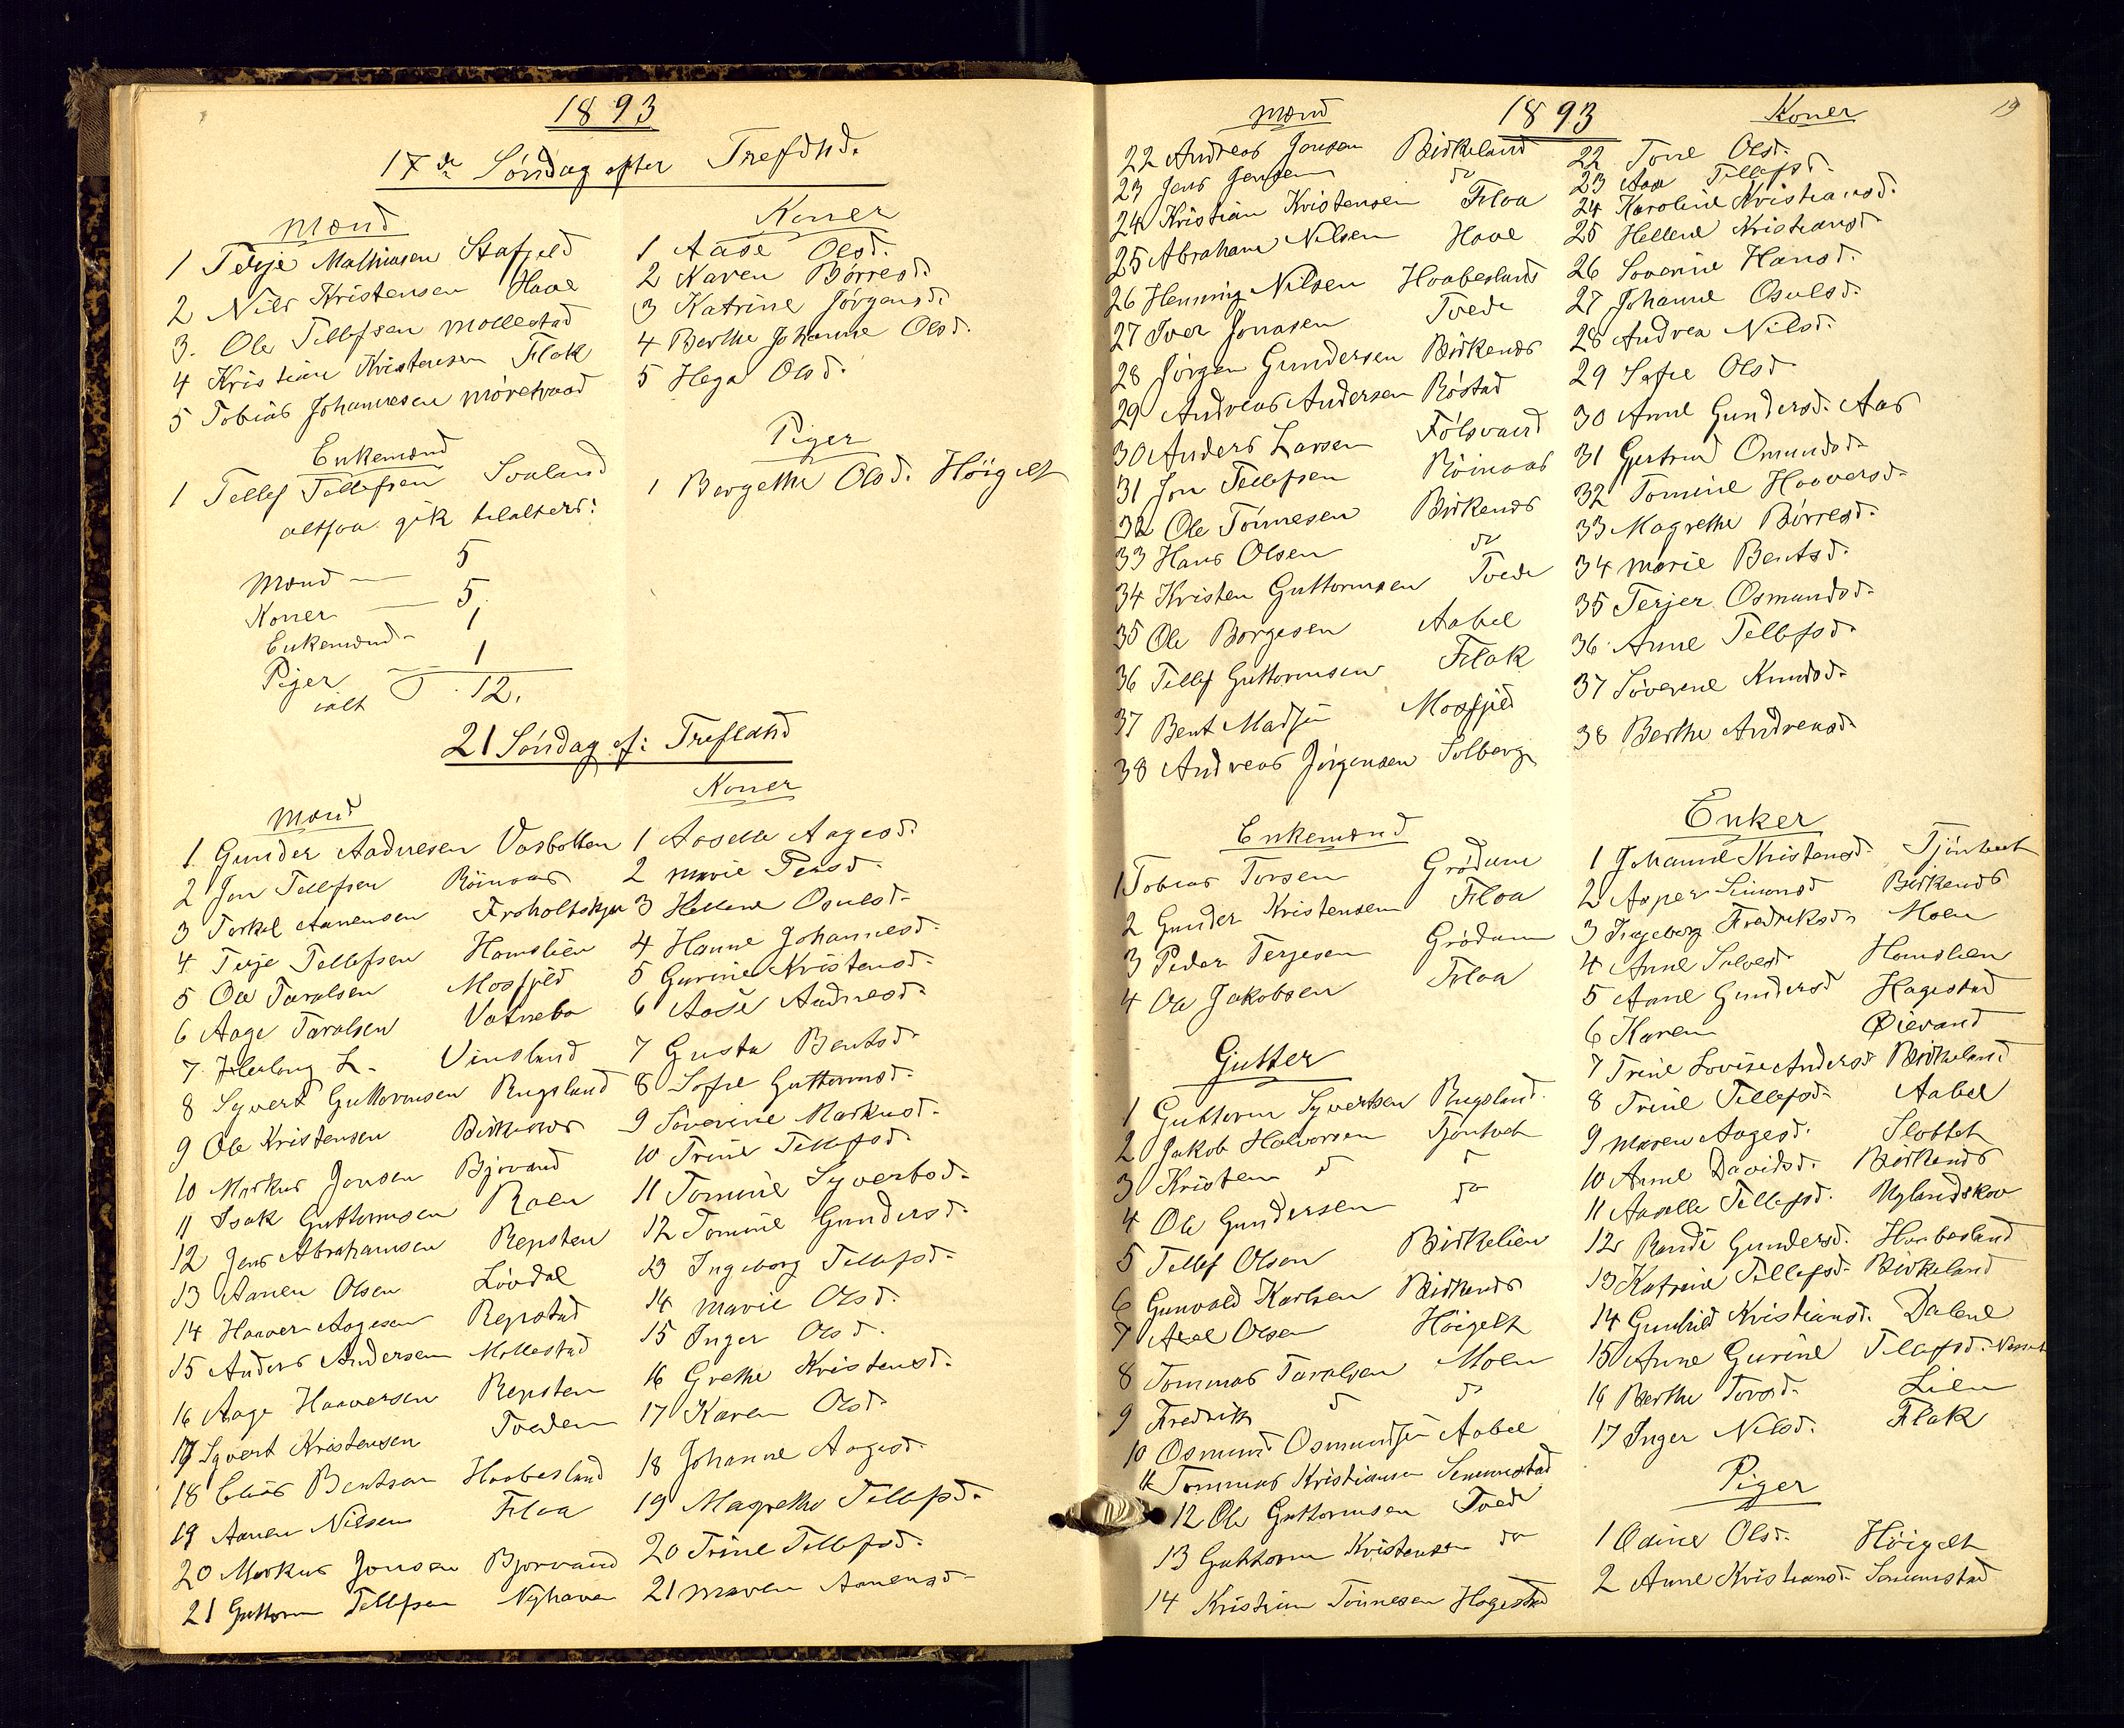 1893
17de Søndag efter Trefdhd.
Mænd
1 Terje Mathiasen Stafjeld
2 Nils Kristensen Haae
3. Ole Tellefsen Mollestad
4 Kristian Kristensen Flak
5 Tobias Johannesen
Koner
1 Aase Olsd.
2 Karen Børresd.
3 Katrine Jørgensd.
4 Berthe Johanne Olsd.
5 Hega Olsd.
Enkemænd
1 Tellef Tellefsen Soaland
Piger
1 Bergethe Olsd. Høigelt
altsaa gik tilalters:
Mænd — 5
Koner — 5
Enkemænd — 1
Piger — 1
ialt 12.
21 Søndag ef: Trefldhd
Mænd
1 Gunder Aadnesen Vasbotten
2 Jon Tellefsen Röinaas
3 Torkel Aanensen
4 Terje Tellefsen Homslien
5 Ole Taralsen Mosfjeld
6 Aage Taralsen Vatnebo
7 L. Vinsland
8 Syvert Guttormsen Rugsland
9 Ole Kristensen Birkenes
10 Markus Jonsen Bjorvand
11 Isak Guttormsen Roen
12 Jens Abrahamsen Repsten
13 Aanen Olsen Løvdal
14 Haaver Aagesen Repstad
15 Anders Andersen Mollestad
16 Aage Haaversen Repsten
17 Syvert Kristensen Tveden
18 Elias Bentsen Haabesland
19 Aanen Nilsen Floa
20 Markus Jonsen Bjorvand
21 Guttorm Tellefsen Nyhaven
Koner
1 Aaselle Aagesd.
2 Marie Persd.
3 Hellene Osulsd.
4 Hanne Johannesd.
5 Gurine Kristensd.
6 Aase Aadnesd.
7 Gusta Bentsd.
8 Sofie Guttormsd.
9 Søverine Markusd.
10 Trine Tellefsd.
11 Tomine Syvertsd.
12 Tomine Gundersd.
13 Ingeborg Tellefsd.
14 Marie Olsd.
15 Inger Olsd.
16 Grethe Kristensd.
17 Karen Olsd.
18 Johanne Aagesd.
19 Magrethe Tellefsd.
20 Trine Tellefsd.
21 Maren Aanensd.
19
1893
Mænd
22 Andreas Jensen Birkeland
23 Jens Jensen do
24 Kristian Kristensen Floa
25 Abraham Nilsen Haae
26 Henning Nilsen Haabesland
27 Iver Jonasen Tvede
28 Jørgen Gundersen Birkenes
29 Andreas Andersen Röstad
30 Anders Larsen Fölsvand
31 Jon Tellefsen Röinaas
32 Ole Tönnesen Birkenes
33 Hans Olsen do
34 Kristen Guttormsen Tvede
35 Ole Børgesen Aabel
36 Tellef Guttormsen Flak
37 Bent Madsen Mosfjeld
38 Andreas Jørgensen Solberg
Koner
22 Tone Olsd.
23 Aasa Tellefsd.
24 Karoline Kristiansd.
25 Hellene Kristiansd
26 Soverine Hansd.
27 Johanne Osulsd.
28 Andrea Nilsd.
29 Sofie Olsd.
30 Anne Gundersd. Aas
31 Gertrud Omundsd.
32 Tomine Haaversd.
33 Magrethe Börresd.
34 Marie Bentsd.
35 Terjer Osmundsd.
36 Anne Tellefsd.
37 Söverine Knudsd.
38 Berthe Andreasd.
Enkemænd
1 Tobias Torsen Grødum
2 Gunder Kristensen Floa
3 Peder Terjesen Grødum
4 Ole Jakobsen Floa
Gutter
1 Guttorm Syvertsen Rugsland.
2 Jakob Halvorsen Tjöntvet
3 Kristen d d
4 Ole Gundersen do
5 Tellef Olsen Birkelien
6 Gunvald Karlsen Birkenes
7 Axel Olsen Höigelt
8 Tommas Taralsen Moen
9 Fredrik d do
10 Osmund Osmundsen Aabel
11 Tommas Kristiansen
12 Ole Guttormsen Tvede
13 Guttorm Kristensen do
14 Kristian Tönnesen Hagestad
Enker
1 Johanne Kristensd. Tjöntvet
2 Asper Simonsd Birkenes
3 Ingeborg Fredriksd. Moen
4 Anne Salvesd. Homslien
5 Aane Gundersd Hagestad
6 Karen Øievand
7 Trine Lovise Andersd. Birkeland
8 Trine Tellefsd. Aabel
9 Maren Aagesd. Slottet
10 Anne Davidsd. Birkenes
11 Aaselle Tellefsd. Uglandskov
12 Randi Gundersd. Haabesland
13 Katrine Tellefsd. Birkeland
14 Gunhild Kristiansd. Dalene
15 Anne Gurine Tellefsd.
16 Berthe Torsd. Lien
17 Inger Nilsd. Flak
Piger
1 Odine Olsd. Höigelt
2 Anne Kristiansd.